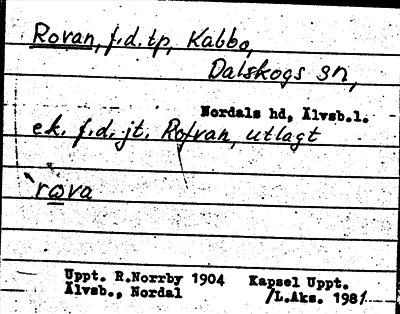 Rovan, f.d. tp, Kabbo,
Dalskogs sn,
Nordals hd, Älvsb.l.
ek. f.d. jt. Rofvan, utlagt
`rova
Uppt. R.Norrby 1904 Kapsel Uppt.
Älvsb., Nordal /L.Aks. 1981